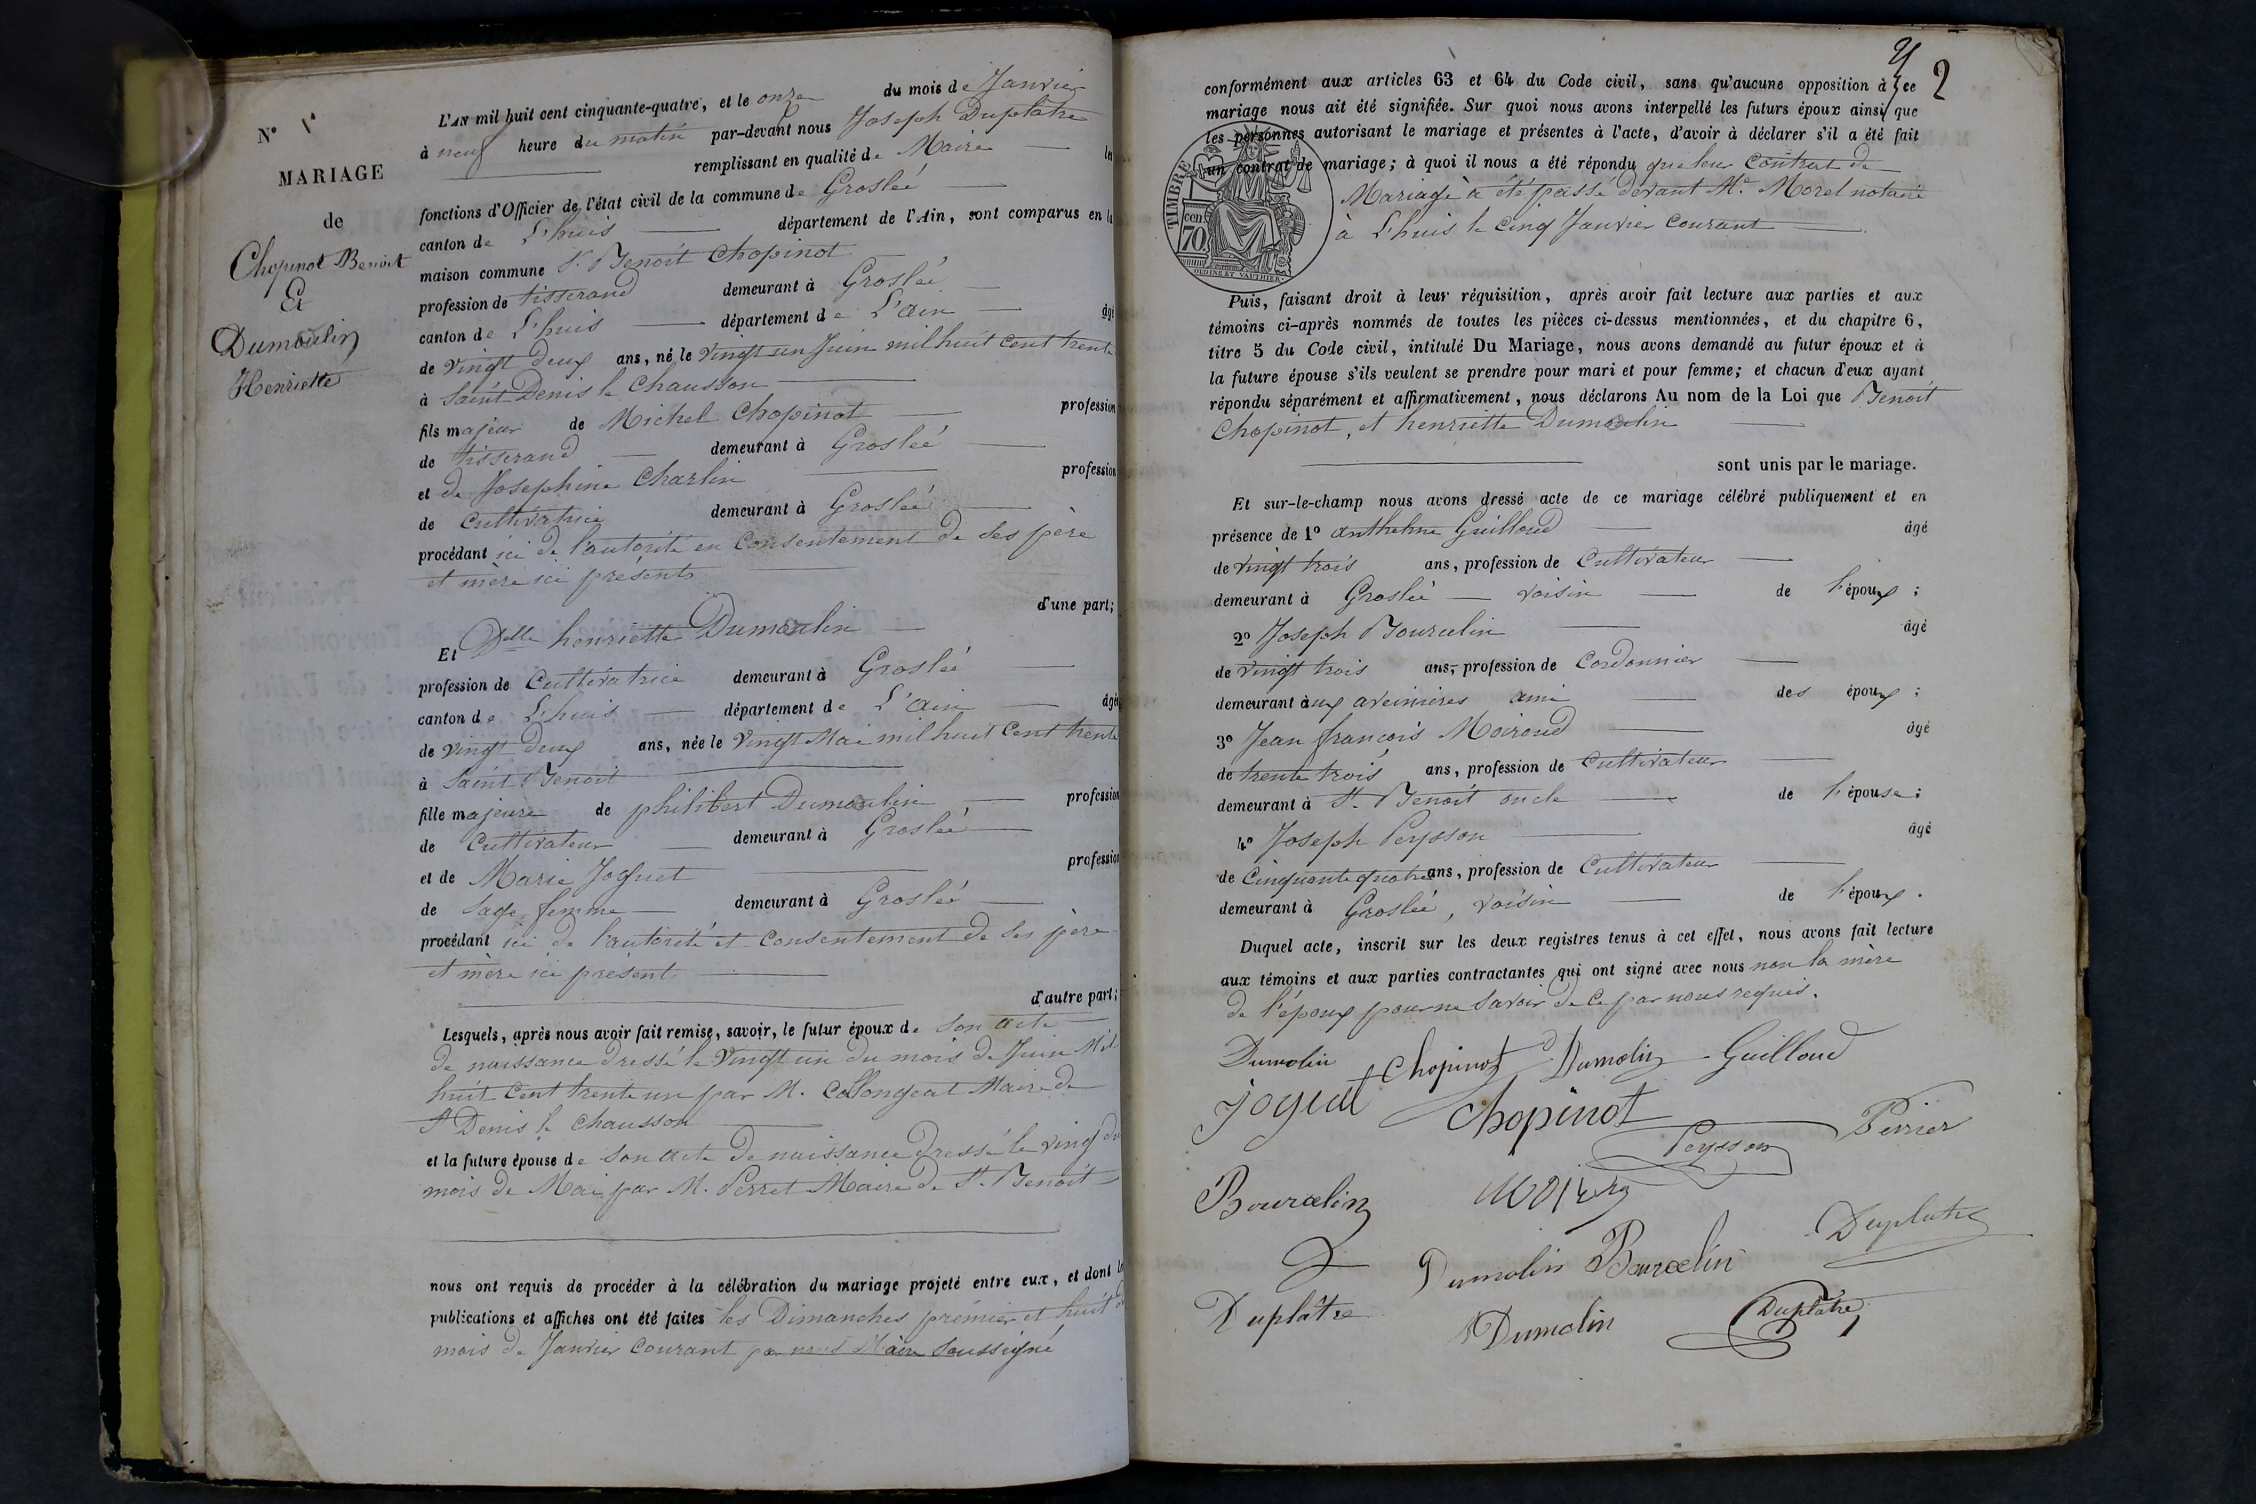 N° 1
MARIAGE
de
Chopinot Benoit
Et
Dumoulin
Henriette
L'AN mil huit cent cinquante-quatre, et le onze du mois de Janvier
à neuf heure du matin par-devant nous Joseph Duplâtre
remplissant en qualité de Maire les
fonctions d'Officier de l'état civil de la commune de Groslée
canton de L'huis département de l'Ain, sont comparus en la
maison commune Sr Benoît Chopinot
profession de tisserand demeurant à Groslée
canton de L'huis département de L'ain âgé
de vingt deux ans, né le vingt un Juin mil huit cent trente
à Saint Denis le Chausson
fils majeur de Michel Chopinot profession
de tisserand demeurant à Groslée
et de Josephine Charlin profession
de cultivatrice demeurant à Groslée
procédant ici de l'autorité en consentement de ses père
et mère ici présents
d'une part;
Et Delle henriette Dumoulin
profession de Cultivatrice demeurant à Groslée
canton de L'huis département de L'ain âgée
de vingt deux ans, née le vingt Mai mil huit cent trente
à Saint Benoit
fille majeure de philibert Dumoulin profession
de Cultivateur demeurant à Groslée
et de Marie Joguet profession
de Sage femme demeurant à Groslée
procédant ici de l'autorité et consentement de ses père
et mère ici présent
d'autre part;
Lesquels, après nous avoir fait remise, savoir, le futur époux de son acte
de naissance dressé le vingt un du mois de Juin Mil
huit cent trente un par M. Collongeat Maire de
St Denis le Chausson
et la future épouse de son acte de naissance dressé le vingt du
mois de Mai par M. Perret Maire de St. Benoit
nous ont requis de procéder à la célébration du mariage projeté entre eux, et dont les
publications et affiches ont été faites les Dimanches premier et huit du
mois de Janvier courant par nous Maire soussigné
2
conformément aux articles 63 et 64 du Code civil, sans qu'aucune opposition à ce
mariage nous ait été signifiée. Sur quoi nous avons interpellé les futurs époux ainsi que
les personnes autorisant le mariage et présentes à l'acte, d'avoir à déclarer s'il a été fait
un contrat de mariage; à quoi il nous a été répondu que leur contrat de
Mariage a été passé devant Me. Morel notaire
à L'huis le cinq Janvier courant
TIMBRE
cen
70
OUDINE ET VAUTHIER
Puis, faisant droit à leur réquisition, après avoir fait lecture aux parties et aux
témoins ci-après nommés de toutes les pièces ci-dessus mentionnées, et du chapitre 6,
titre 5 du Code civil, intitulé Du Mariage, nous avons demandé au futur époux et à
la future épouse s'ils veulent se prendre pour mari et pour femme; et chacun d'eux ayant
répondu séparément et affirmativement, nous déclarons Au nom de la Loi que Benoît
Chopinot, et henriette Dumoulin
sont unis par le mariage.
Et sur-le-champ nous avons dressé acte de ce mariage célébré publiquement et en
présence de 1° anthelme Guilloud âgé
de vingt trois ans, profession de Cultivateur
demeurant à Groslée voisin de l'époux;
2° Joseph Bourcelin âgé
de vingt trois ans, profession de Cordonnier
demeurant aux aveinieres ami des époux;
3° Jean françois Moiroud âgé
de trente trois ans, profession de Cultivateur
demeurant à St. Benoit oncle de l'épouse;
4° Joseph Peysson âgé
de Cinquante quatre ans, profession de Cultivateur
demeurant à Groslée, voisin de l'époux.
Duquel acte, inscrit sur les deux registres tenus à cet effet, nous avons fait lecture
aux témoins et aux parties contractantes qui ont signé avec nous non la mère
de l'époux pour ne savoir de ce par nous requis.
Dumolin Chopinot Dumolin Guilloud
Joguet Chopinot Peysson Perrier
Bourcelin
Dumolin Bourcelin Duplatre
Duplâtre Dumolin Duplatre